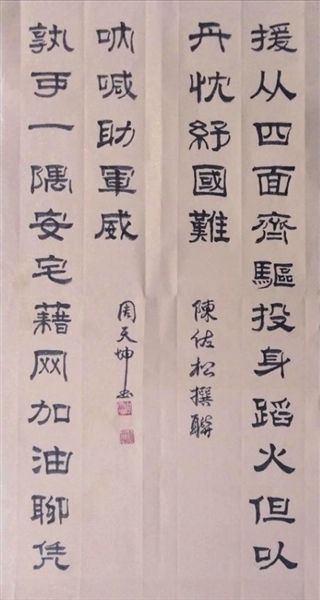 援从四面齊驅投身蹈火但以
丹忱紓國難
陳佐松撰聯
執事一隅安宅藉网加油聊凭
吶喊助軍威
周天坤书